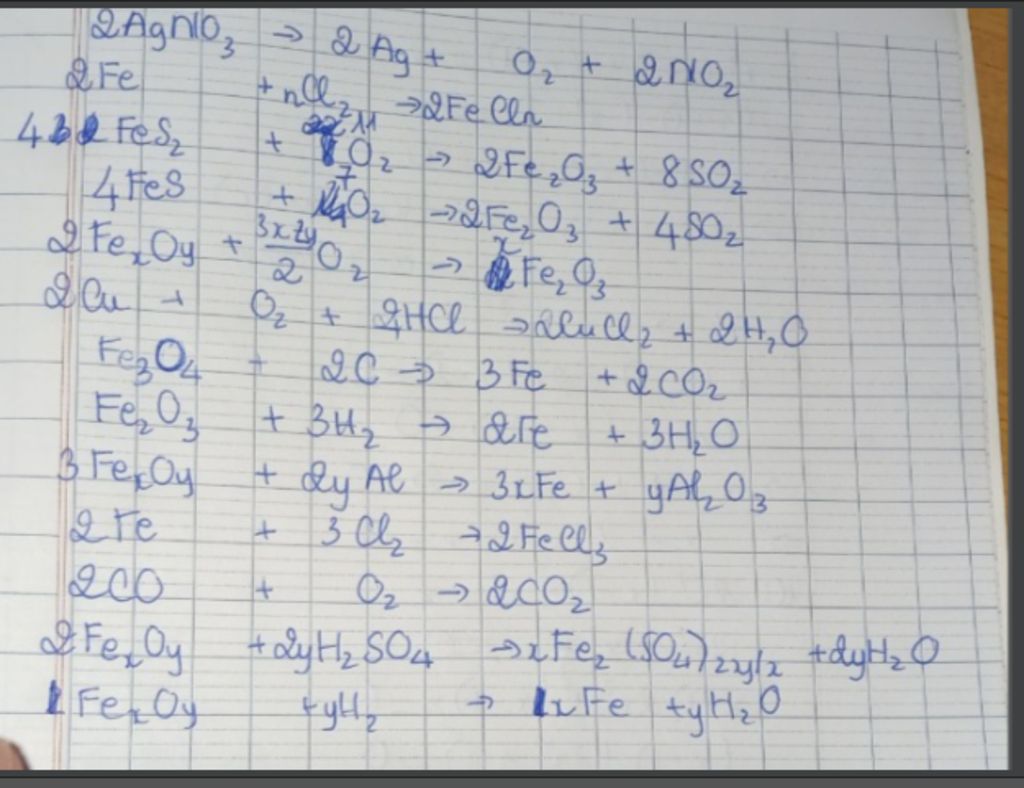 2AgNO₃ → 2Ag + O₂ + 2NO₂
2Fe + nCl₂ → 2FeCln
4 FeS₂ + 11 O₂ → 2Fe₂O₃ + 8SO₂
4FeS + 7 O₂ → 2Fe₂O₃ + 4SO₂
2FeₓOy + O₂ → x Fe₂O₃
2Cu + O₂ + 4HCl → 2CuCl₂ + 2H₂O
Fe₃O₄ + 2C → 3Fe + 2CO₂
Fe₂O₃ + 3H₂ → 2Fe + 3H₂O
3FeₓOy + 2yAl → 3xFe + yAl₂O₃
2Fe + 3Cl₂ → 2FeCl₃
2CO + O₂ → 2CO₂
2FeₓOy + 2yH₂SO₄ → xFe₂(SO₄)₂y/x + 2yH₂O
1FeₓOy + yH₂ → 1xFe + yH₂O